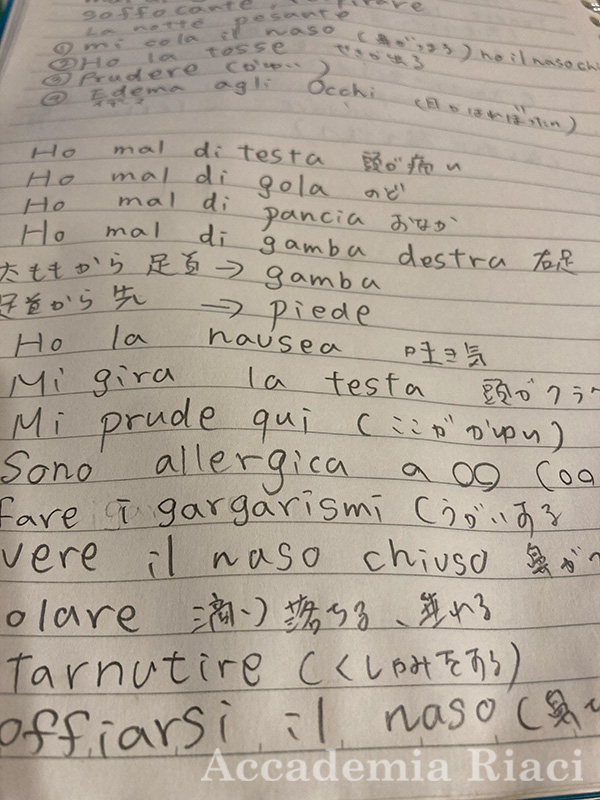 soffocante, respirare
La notte pesante
① mi cola il naso (鼻がつまる) ho il naso ch
② Ho la tosse せきがある
③ Prudere (かゆい)
④ Edema agli Occhi (目がはれぼったい)
Ho mal di testa 頭が痛い
Ho mal di gola のど
Ho mal di pancia おなか
Ho mal di gamba destra 右足
太ももから 足首 → gamba
足首から 先 → piede
Ho la nausea 吐き気
Mi gira la testa 頭がクラ
Mi prude qui (ここがかゆい)
Sono allergica a OO (OO
fare i gargarismi (うがいする
vere il naso chiuso 鼻が
olare 滴り落ちる、垂れる
tarnutire (くしゃみをする)
offiarsi il naso (鼻
Accademia Riaci